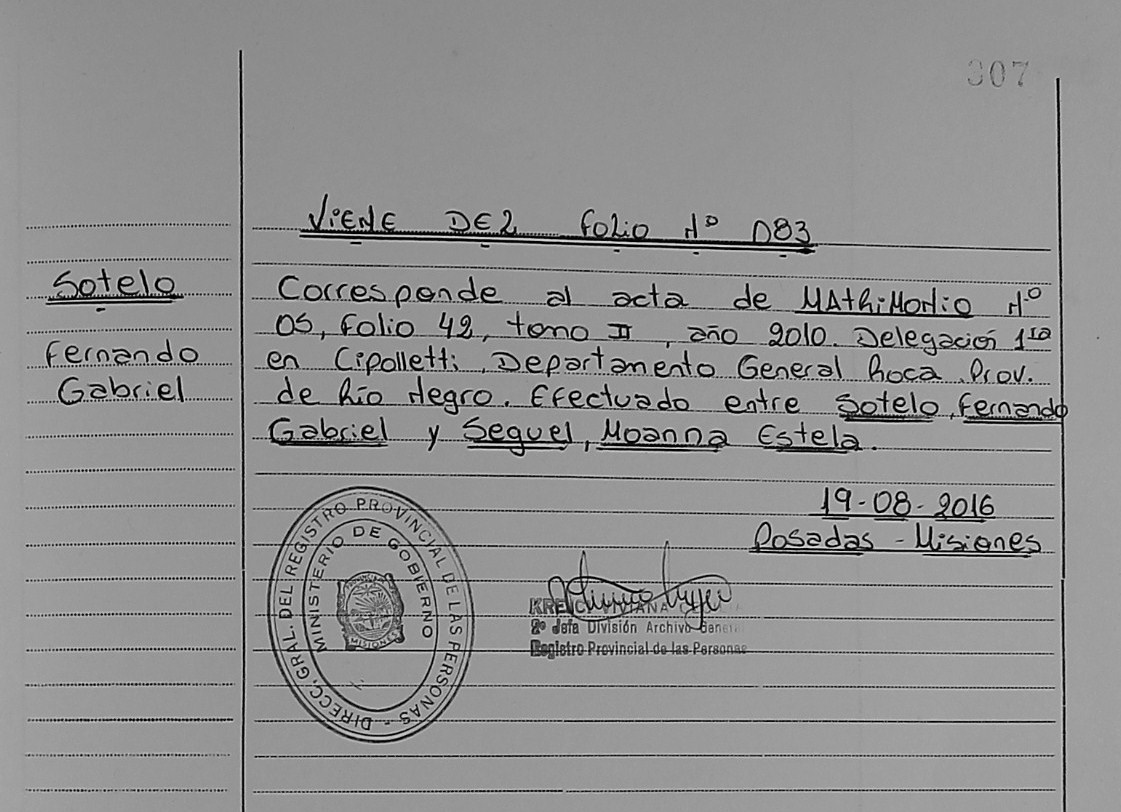 307
VIENE DEL FOLIO Nº 083
Sotelo
Fernando
Gabriel
Corresponde al acta de MAtRiMoNio Nº
05, Folio 42, tomo II, año 2010. Delegación 1ra
en Cipolletti, Departamento General Roca. Prov.
de Río Negro. Efectuado entre Sotelo, Fernando
Gabriel y Seguel, Moanna Estela.
19-08-2016
Posadas - Misiones
DIRECC. GRAL. DEL REGISTRO PROVINCIAL DE LAS PERSONAS -
MINISTERIO DE GOBIERNO
MISIONES
2º Jefa División Archivo General
Registro Provincial de las Personas